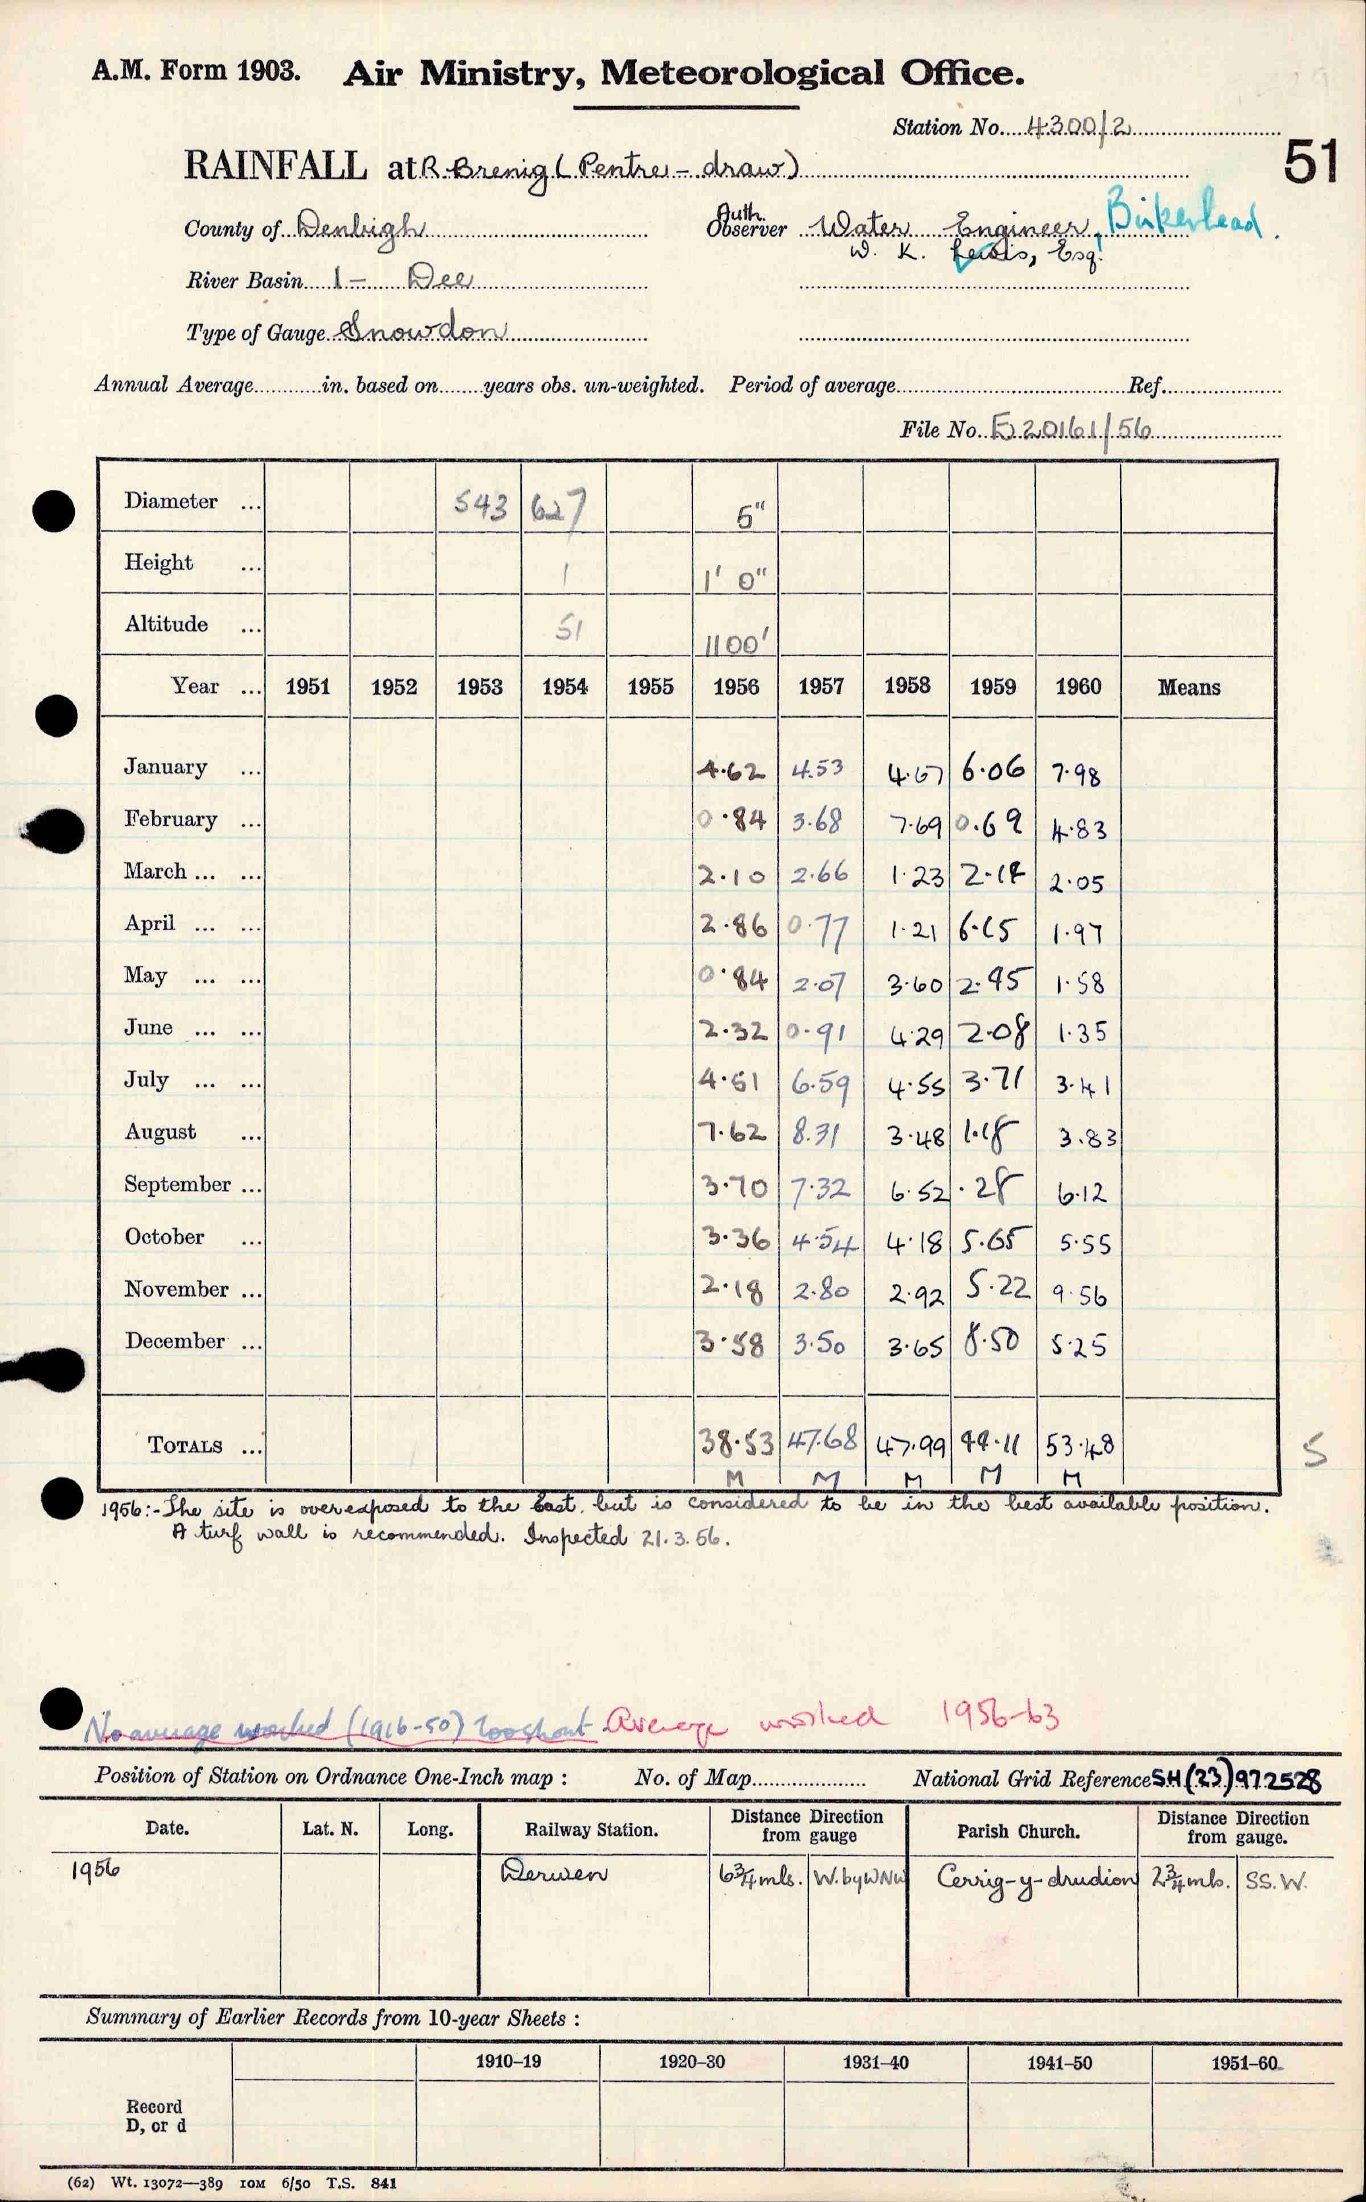 A.M. Form 1903. Air Ministry, Meteorological Office.
Station No. 4300/2
51
RAINFALL at R. Brenig (Pentre-draw)
County of Denbigh Auth. Observer Water Engineer, Birkenhead.
W. K. Lewis, Esq.
River Basin 1 - Dee
Type of Gauge Snowdon
Annual Average in. based on years obs. un-weighted. Period of average Ref.
File No. E20161/56
Diameter ... 543 627 5"
Height ... 1 1' 0"
Altitude ... 51 1100'
Year ... 1951 1952 1953 1954 1955 1956 1957 1958 1959 1960 Means
January ... 4.62 4.53 4.67 6.06 7.98
February ... 0.84 3.68 7.69 0.69 4.83
March ... ... 2.10 2.66 1.23 2.14 2.05
April ... ... 2.86 0.77 1.21 6.15 1.97
May ... ... 0.84 2.07 3.60 2.45 1.58
June ... ... 2.32 0.91 4.29 2.08 1.35
July ... ... 4.51 6.59 4.55 3.71 3.41
August ... 7.62 8.31 3.48 1.18 3.83
September ... 3.70 7.32 6.52 .28 6.12
October ... 3.36 4.54 4.18 5.65 5.55
November ... 2.18 2.80 2.92 5.22 9.56
December ... 3.58 3.50 3.65 8.50 5.25
TOTALS ... 38.53 47.68 47.99 44.11 53.48
5
M M M M M
1956:- The site is overexposed to the East, but is considered to be in the best available position.
A turf wall is recommended. Inspected 21.3.56.
No average worked (1916-50) too short. Average worked 1956-63
Position of Station on Ordnance One-Inch map : No. of Map National Grid Reference SH(23)972528
Date. Lat. N. Long. Railway Station. Distance Direction from gauge Parish Church. Distance Direction from gauge.
1956 Derwen 6¾ mls. W. by WNW Cerrig-y-drudion 2¾ mls. SS.W.
Summary of Earlier Records from 10-year Sheets :
1910–19 1920–30 1931–40 1941–50 1951–60
Record
D, or d
(62) Wt. 13072—389 10M 6/50 T.S. 841